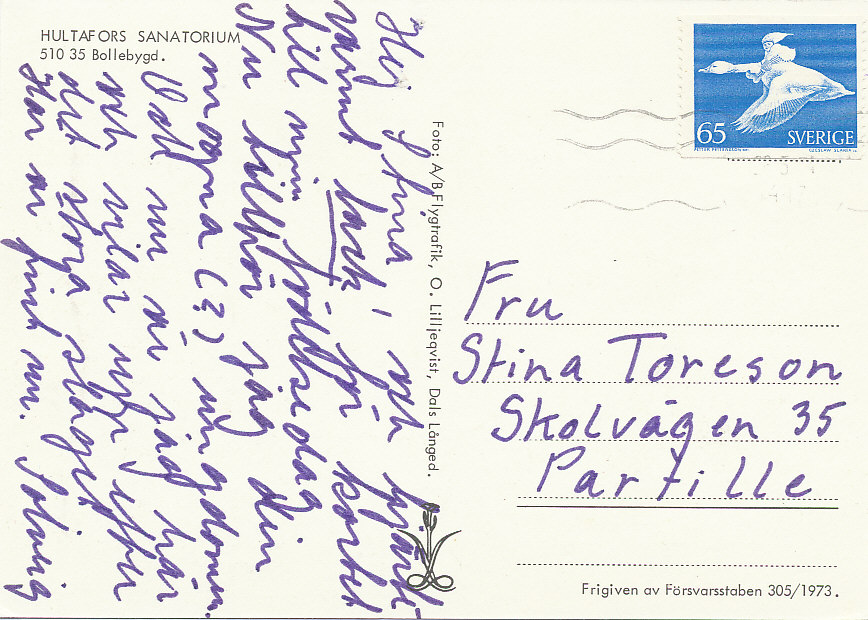 HULTAFORS SANATORIUM
510 35 Bollebygd.
Hej Stina! och hjärt-
varmt tack, för kortet
till min födelsedag
Nu tillhör jag den
mogna (?) ungdomen.
Väl nu är jag här
och vilar upp efter
det stora slaget.
Här är fint nu. Solveig
Foto: A/B Flygtrafik, O. Lilljeqvist, Dals Långed.
65
SVERIGE
CZESLAW SLANIA SC.
Fru
Stina Toreson
Skolvägen 35
Partille
Frigiven av Försvarsstaben 305/1973.